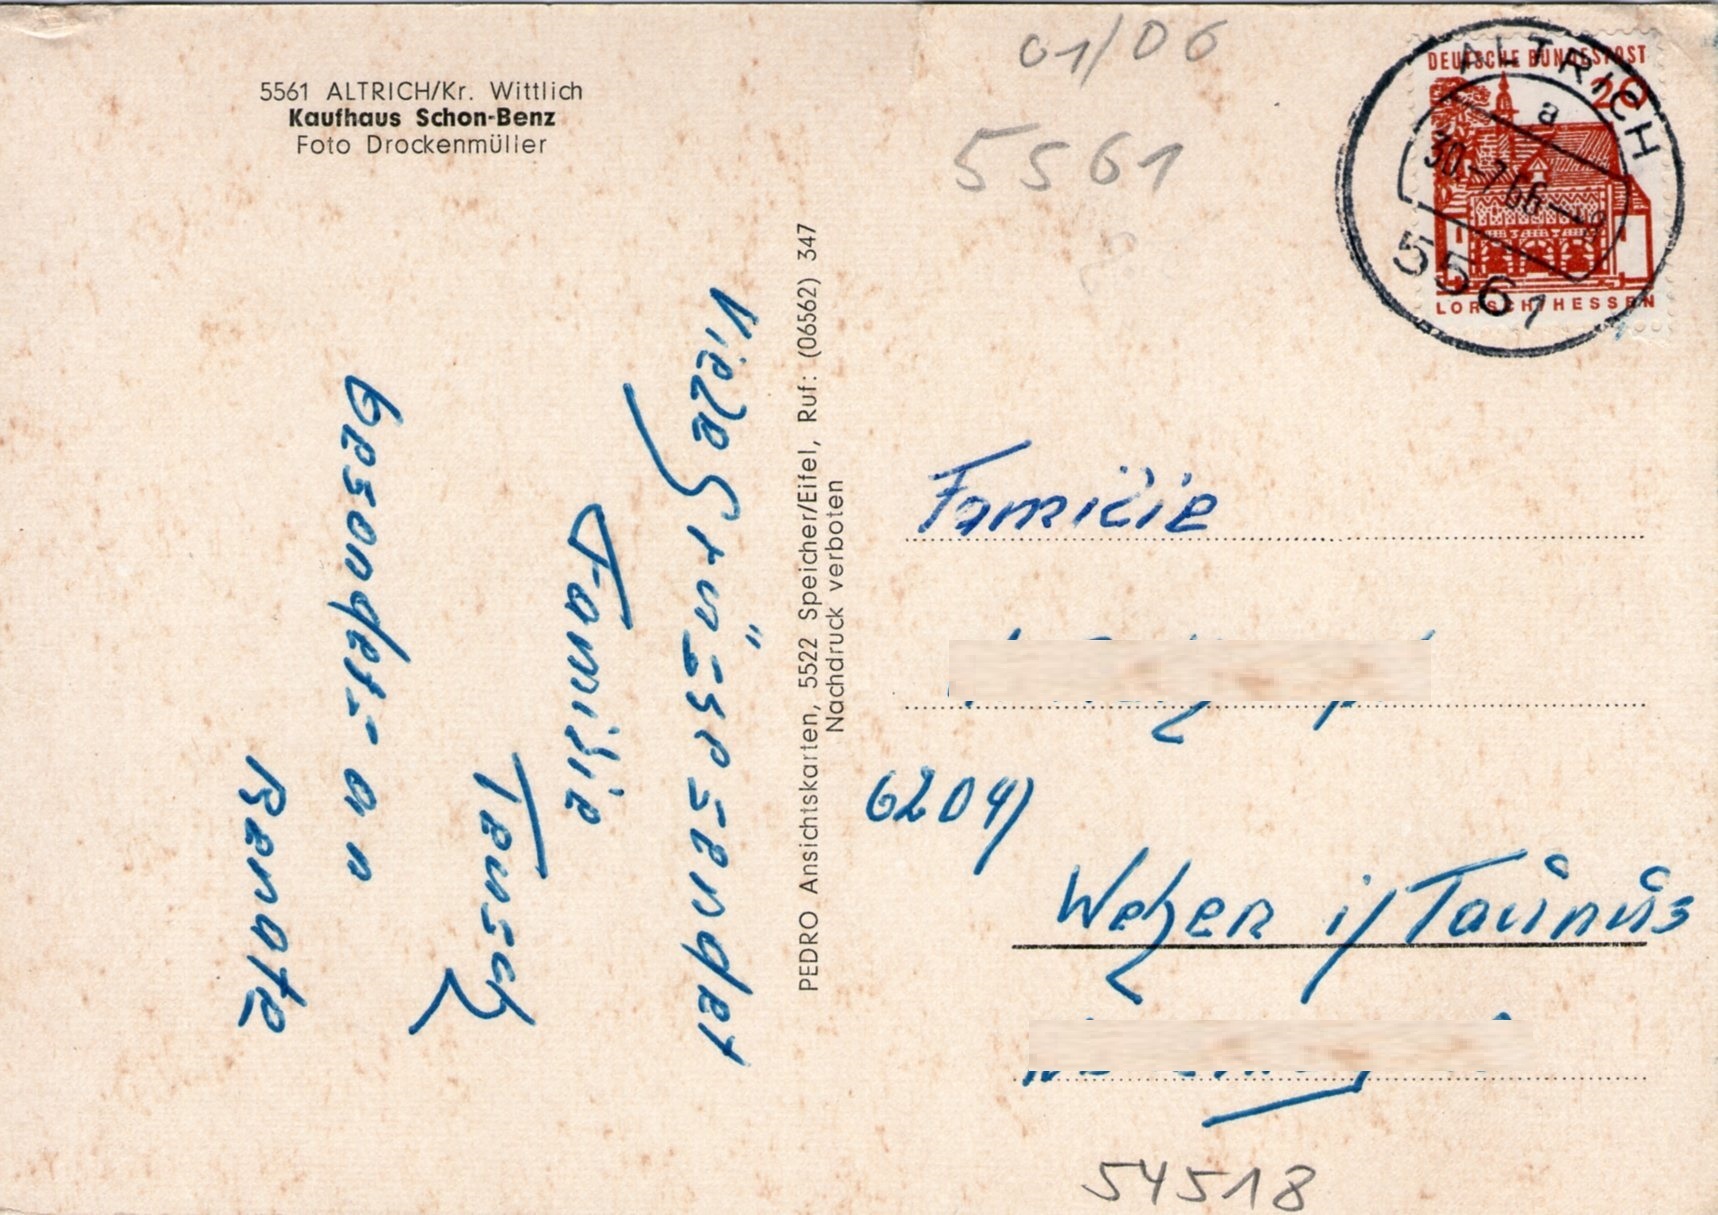 01/06
5561 ALTRICH/Kr. Wittlich
Kaufhaus Schon-Benz
Foto Drockenmüller
5561
DEUTSCHE BUNDESPOST
20
LORSCH/HESSEN
ALTRICH
a
30.-7.66-
5561
Viele Grüsse sendet
Familie
Teusch
besonders an
Renate
PEDRO Ansichtskarten, 5522 Speicher/Eifel, Ruf: (06562) 347
Nachdruck verboten
Familie
6204)
Weher i/Taunus
54518